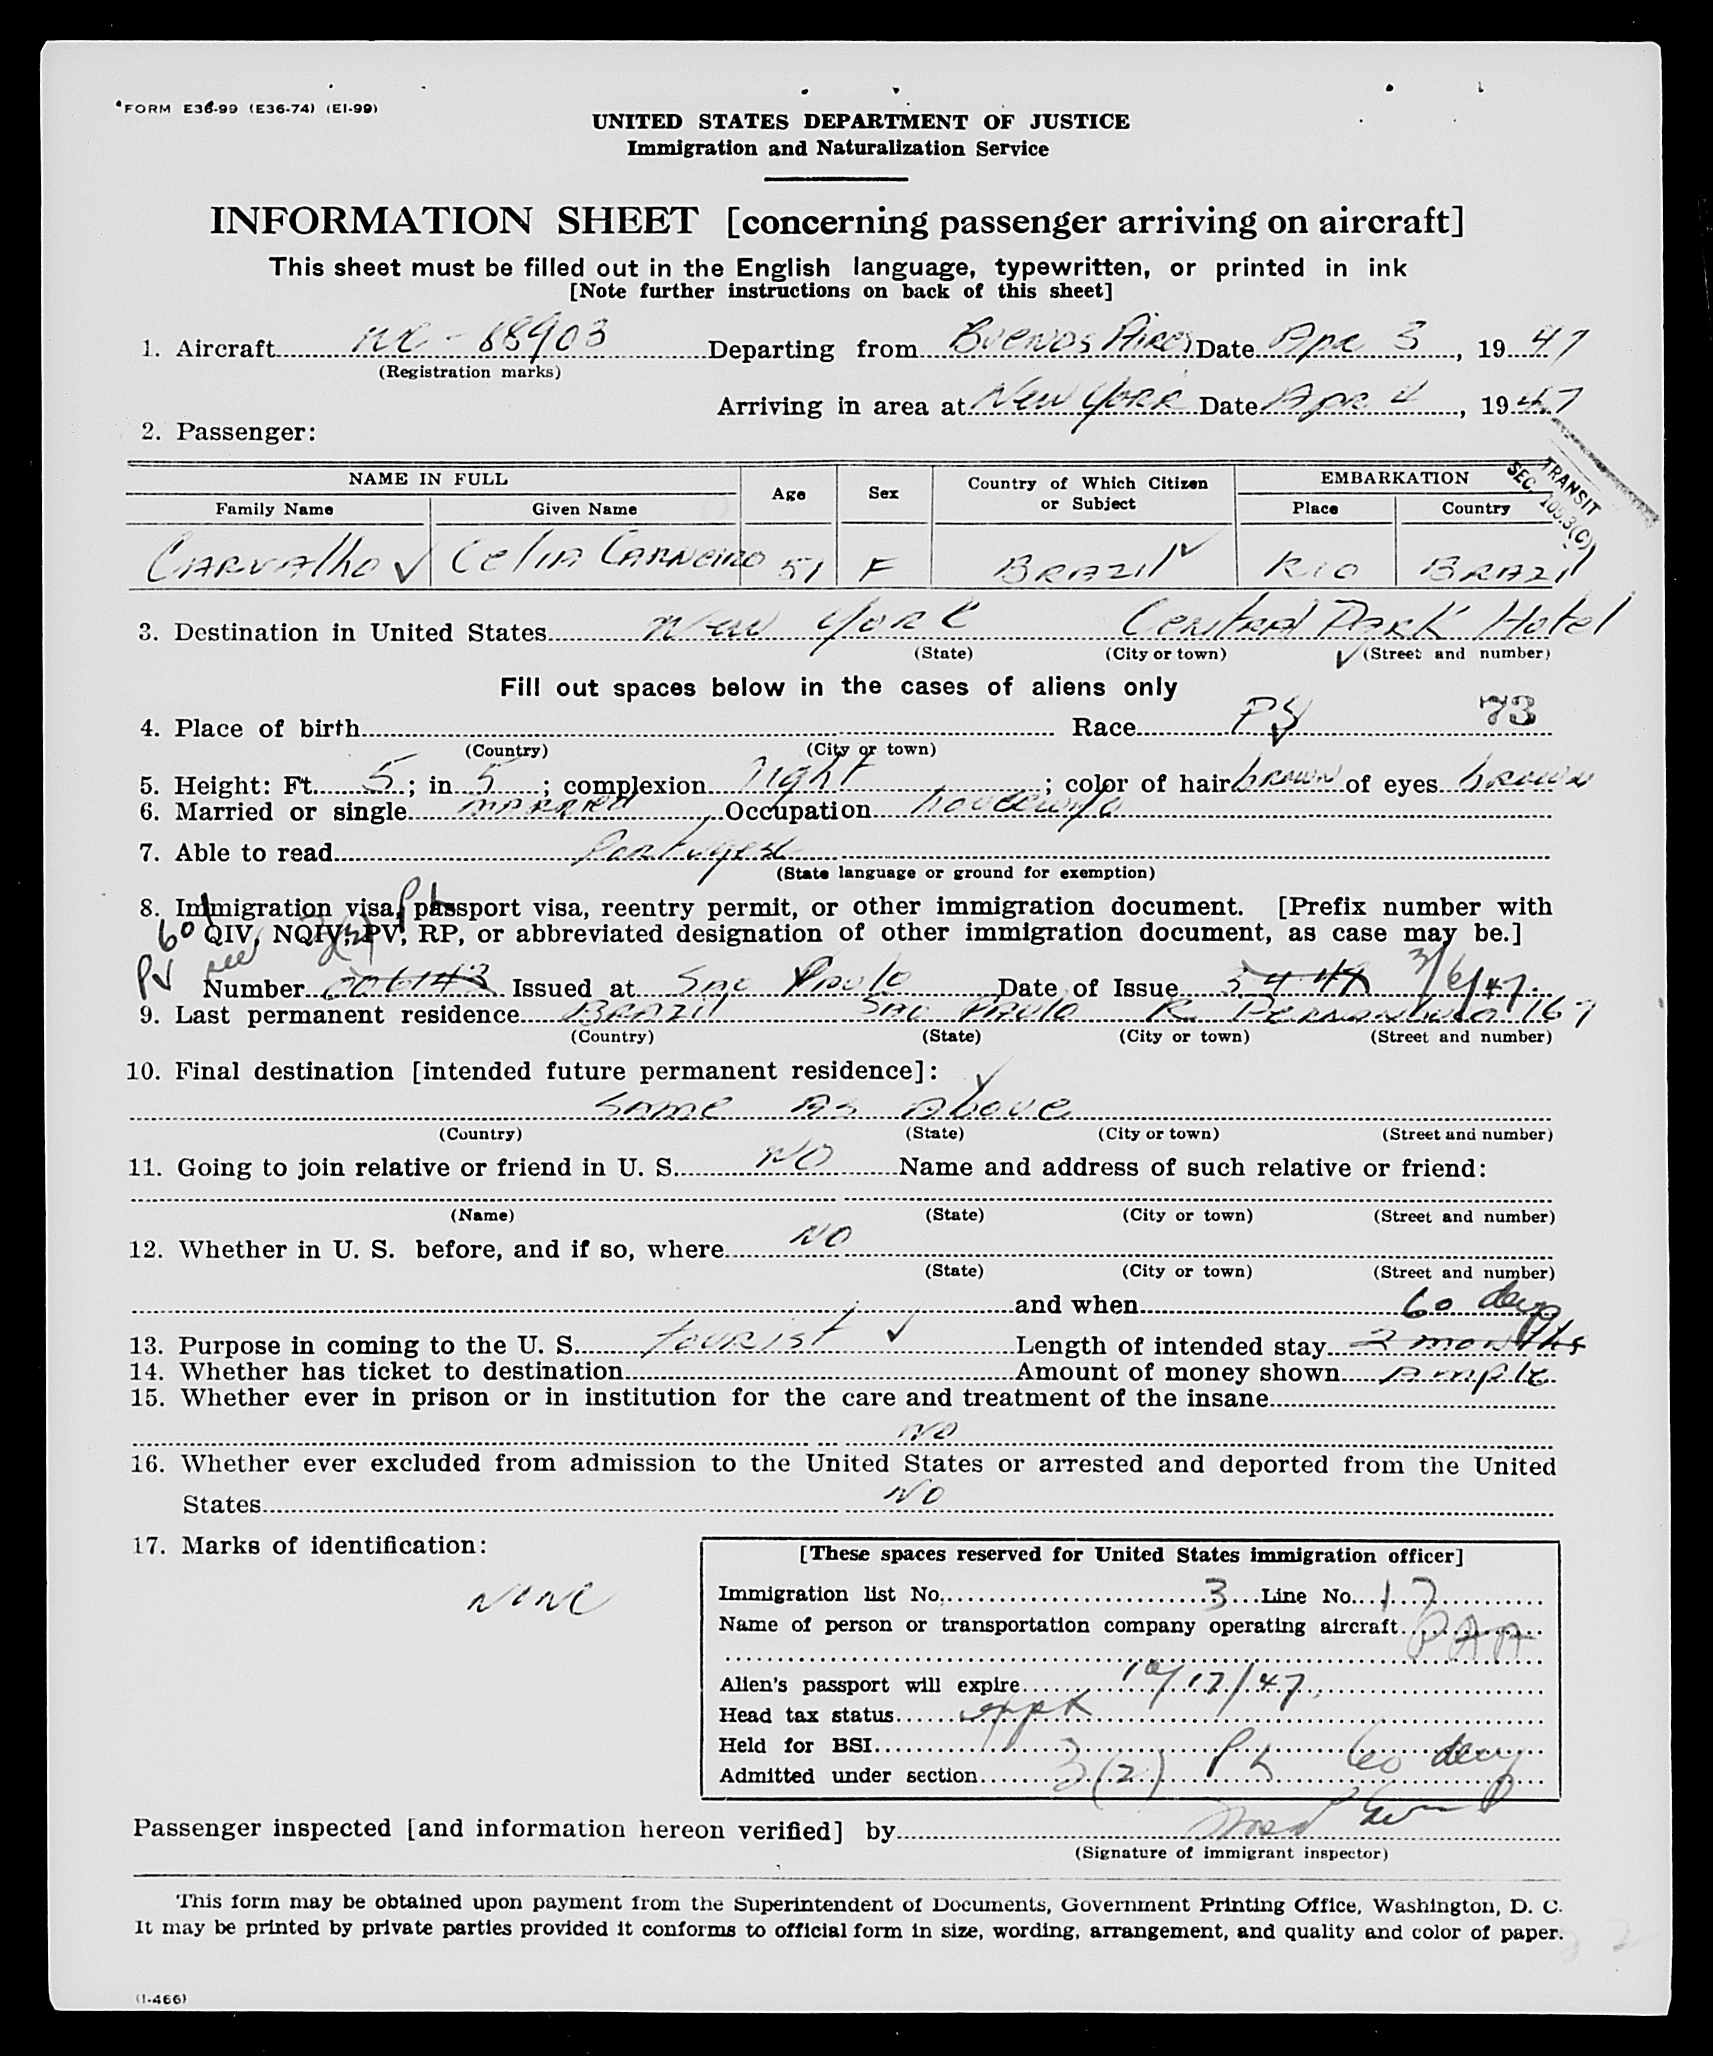 FORM E36-99 (E36-74) (E1-99)
UNITED STATES DEPARTMENT OF JUSTICE
Immigration and Naturalization Service
INFORMATION SHEET [concerning passenger arriving on aircraft]
This sheet must be filled out in the English language, typewritten, or printed in ink
[Note further instructions on back of this sheet]
1. Aircraft NC-88903 Departing from Buenos Aires Date Apr 3, 1947
(Registration marks)
Arriving in area at New York Date Apr 4, 1947
2. Passenger:
TRANSIT
SEC. 105.3(C)
NAME IN FULL Age Sex Country of Which Citizen or Subject EMBARKATION
Family Name Given Name Place Country
Carvalho Celia Carneiro 51 F Brazil Rio Brazil
3. Destination in United States New York Central Park Hotel
(State) (City or town) (Street and number)
Fill out spaces below in the cases of aliens only
4. Place of birth Race 73
(Country) (City or town)
5. Height: Ft. 5; in 5; complexion light; color of hair brown of eyes brown
6. Married or single married Occupation housewife
7. Able to read Portugese
(State language or ground for exemption)
8. Immigration visa, passport visa, reentry permit, or other immigration document. [Prefix number with
QIV, NQIV, PV, RP, or abbreviated designation of other immigration document, as case may be.]
PV Number 206143 Issued at Sao Paulo Date of Issue 3 4 47 3/6/47.
9. Last permanent residence Brazil Sao Paulo R Pernambuco 167
(Country) (State) (City or town) (Street and number)
10. Final destination [intended future permanent residence]:
Same as above
(Country) (State) (City or town) (Street and number)
11. Going to join relative or friend in U. S. NO Name and address of such relative or friend:
(Name) (State) (City or town) (Street and number)
12. Whether in U. S. before, and if so, where NO
(State) (City or town) (Street and number)
and when 60 days
13. Purpose in coming to the U. S. tourist Length of intended stay 2 months
14. Whether has ticket to destination Amount of money shown Ample
15. Whether ever in prison or in institution for the care and treatment of the insane
NO
16. Whether ever excluded from admission to the United States or arrested and deported from the United
States NO
17. Marks of identification:
None
[These spaces reserved for United States immigration officer]
Immigration list No. 3 Line No. 17
Name of person or transportation company operating aircraft PAA
Alien's passport will expire 10/17/47
Head tax status
Held for BSI
Admitted under section 3(2) 60 days
Passenger inspected [and information hereon verified] by
(Signature of immigrant inspector)
This form may be obtained upon payment from the Superintendent of Documents, Government Printing Office, Washington, D. C.
It may be printed by private parties provided it conforms to official form in size, wording, arrangement, and quality and color of paper.
(I-466)